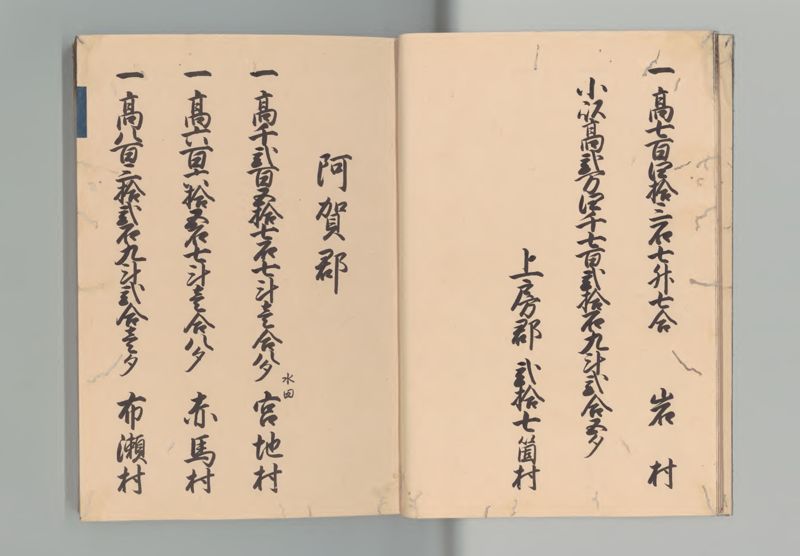 一 高七百四拾三石七升七合 岩村
小以高弐万四千七百弐拾石九斗弐合五夕
上房郡 弐拾七箇村
阿賀郡
一 高千弐百五拾七石七斗壱合八夕 水田 宮地村
一 高六百六拾五石七斗壱合八夕 赤馬村
一 高八百三拾弐石九斗弐合壱夕 布瀬村